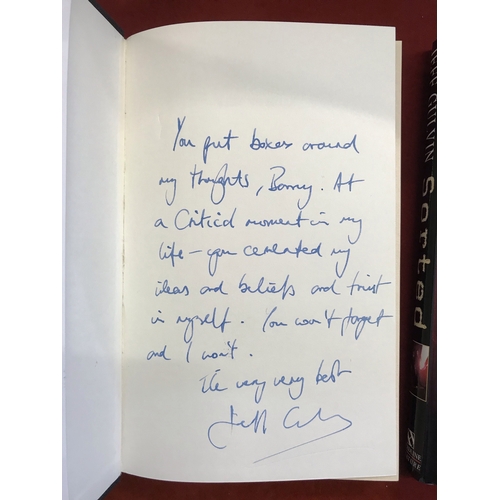 You put boxes around
my thoughts, Barry. At
a Critical moment in my
life – you cemented my
ideas and beliefs and trust
in myself. You won't forget
and I won't.
The very very best
Jeff
JEFF GULVIN Sorted